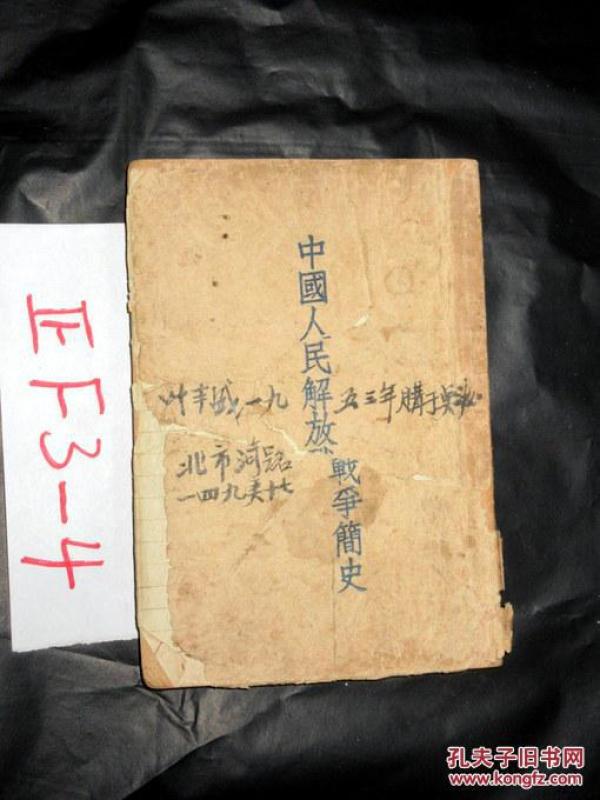 正F3-4
中國人民解放
戰爭簡史
一九 五三年購于
北市河路
一四九
孔夫子旧书网
www.kongfz.com